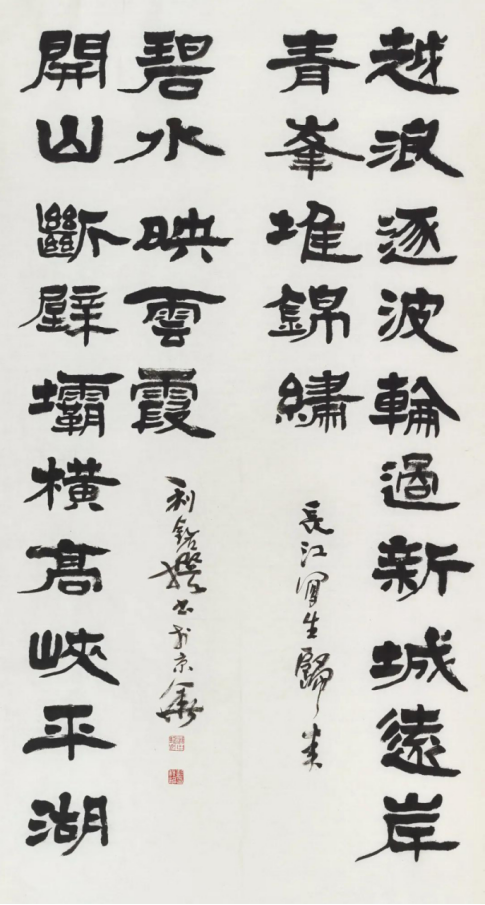 越浪逐波輪過新城遠岸
青峯堆錦繡
長江寫生歸來
開山斷壁壩橫高峽平湖
碧水映雲霞
利撰書於京華